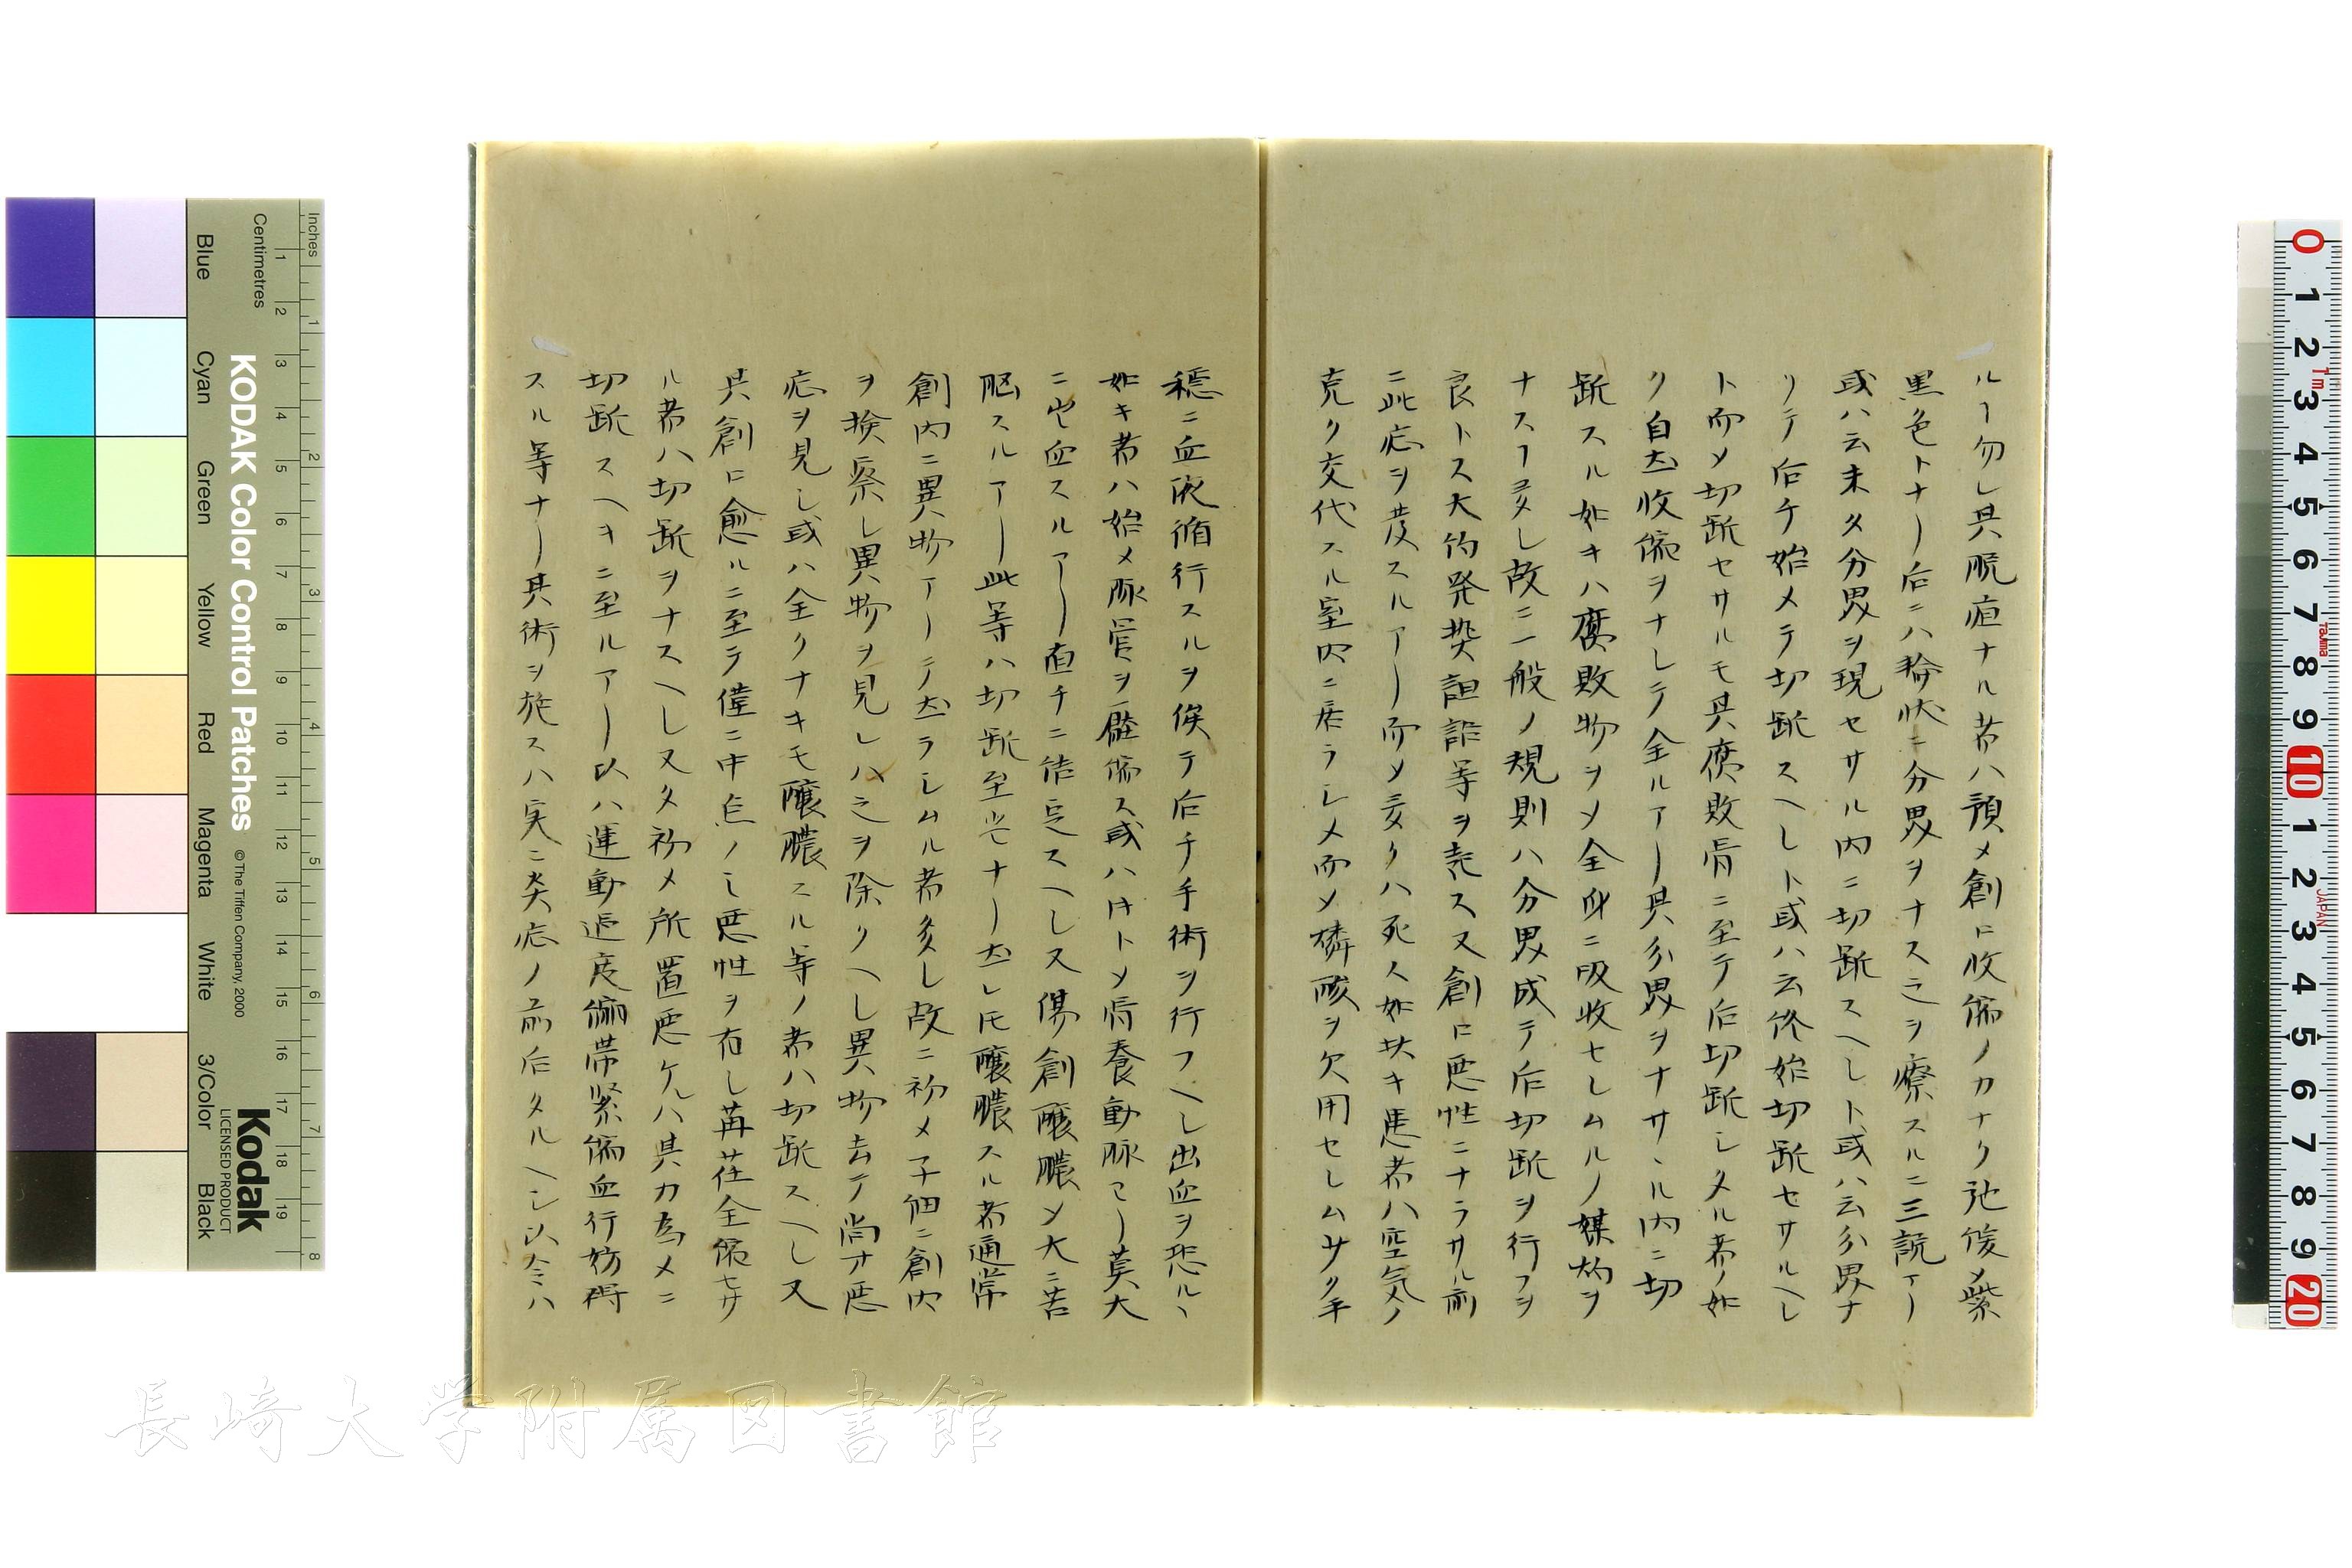 ルヿ勿レ其脱疽ナル者ハ預メ創口收縮ノ力ナク弛緩〆紫
黒色トナリ后ニハ輪状ニ分界ヲナス之ヲ療スルニ三説アリ
或ハ云未タ分界ヲ現セサル内ニ切断スヘシト或ハ云分界ナ
リテ后チ始メテ切断スヘシト或ハ云終始切断セサルヘシ
ト而〆切断セサルモ其腐敗骨ニ至テ后切断シタル者ノ如
ク自然收縮ヲナシテ全ルアリ其分界ヲナサヽル内ニ切
断スル如キハ腐敗物ヲ〆全身ニ吸收セシムルノ媒灼ヲ
ナスヿ多シ故ニ一般ノ規則ハ分界成テ后切断ヲ行フヲ
良トス大約発熱譫語等ヲ発ス又創口悪性ニナラサル前
ニ此症ヲ発スルアリ而〆多クハ死ス如此キ患者ハ空気ノ
克ク交代スル室内ニ居ラシメ而〆燐酸ヲ欠用セシムサク手
穏ニ血液循行スルヲ俟テ后チ手術ヲ行フヘシ出血ヲ恐ルヽ
如キ者ハ始メ脉管ヲ壓縮ス或ハ時ト〆骨養動脉ヨリ莫大
ニ出血スルアリ直チニ結定スヘシ又傷創醸膿〆大ニ苦
脳スルアリ此等ハ切断至当ナリ然レ𪜈醸膿スル者通常
創内ニ異物アリテ然ラシムル者多シ故ニ初メ子細ニ創内
ヲ検察シ異物ヲ見レハ之ヲ除クヘシ異物去テ尚才悪
症ヲ見シ或ハ全クナキモ醸膿スル等ノ者ハ切断スヘシ又
其創口愈ルニ至テ僅ニ中点ノミ悪性ヲ有シ荏苒全備セサ
ル者ハ切断ヲナスヘシ又タ初メ所置悪ケレハ其力為メニ
切断スヘキニ至ルアリ以ハ運動過度繃帯緊縮血行妨碍
スル等ナリ其術ヲ施スハ実ニ炎症ノ前后タルヘシ以今ハ
長崎大学附属図書館
KODAK Color Control Patches
©The Tiffen Company, 2000
Kodak
LICENSED PRODUCT
Inches
Centimetres
Blue
Cyan
Green
Yellow
Red
Magenta
White
3/Color
Black
1 2 3 4 5 6 7 8 9 10 11 12 13 14 15 16 17 18 19
1 2 3 4 5 6 7 8
0 1 2 3 4 5 6 7 8 9 10 1 2 3 4 5 6 7 8 9 20
1m
Tajima
JAPAN